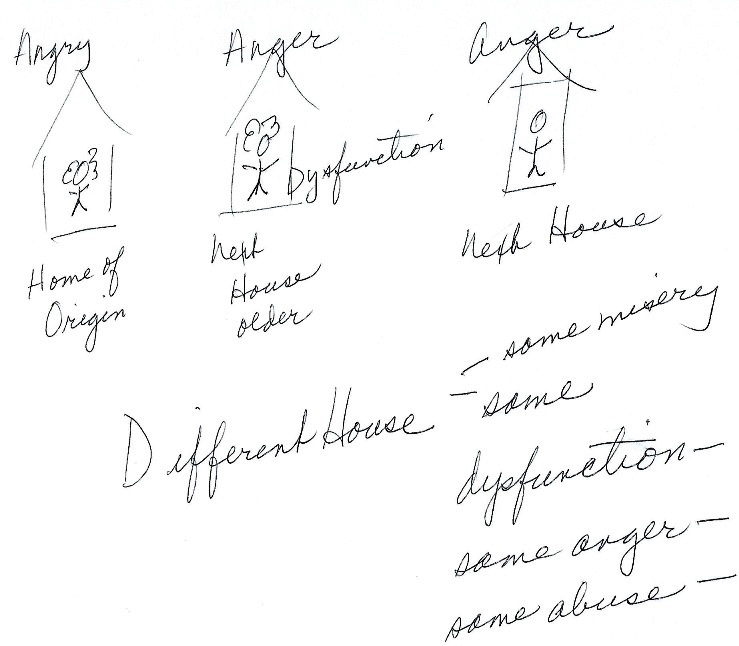 Angry
Anger
Anger
Dysfunction
Home of
Origin
Next
House
older
Next House
Different House = same misery
same
dysfunction –
same anger –
same abuse –